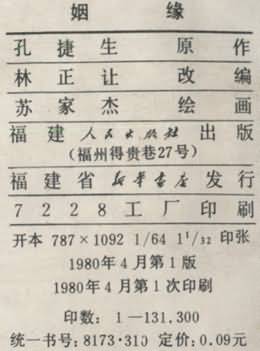 姻缘
孔捷生 原作
林正让 改编
苏家杰 绘画
福建人民出版社出版
(福州得贵巷27号)
福建省新华书店发行
7228工厂印刷
开本 787×1092 1/64 1 1/32 印张
1980年4月第1版
1980年4月第1次印刷
印数：1—131,300
统一书号：8173·310 定价：0.09元